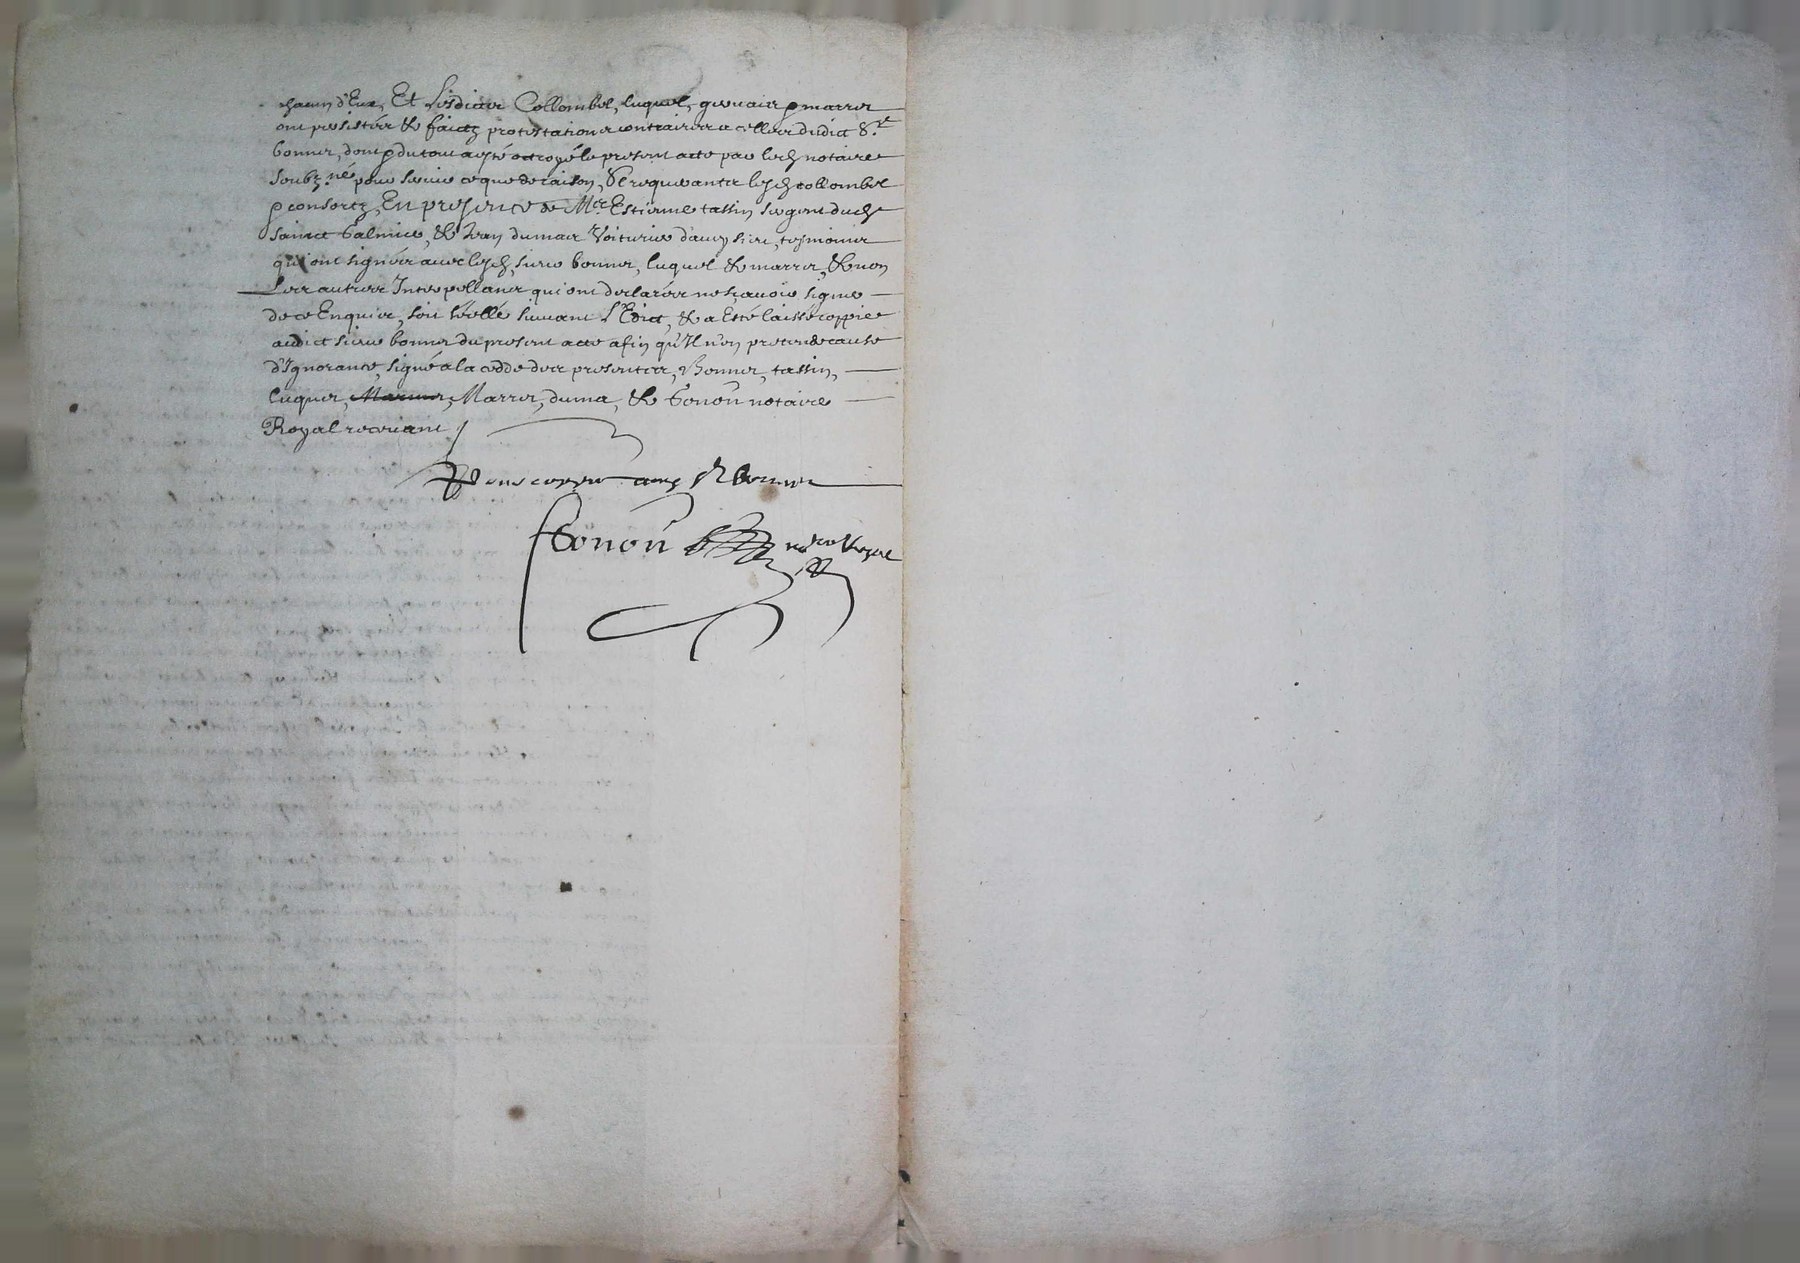 chacun d'Eux, Et Lesdictes Collombel, luquel, gervais & marrer
ont persistées & faictz protestationes contraires a celles dudict Sr
bonner, dont & du tout a esté octroyé le present acte par lesd notaire
soubzné pour servir ce que de raison, Ce requerantes lesd collombel
& consortz, En presence de Mre Estienne tassin sergent dud
sainct Galmier, & Jean dumas Voiturier tesmoins
qui ont signées avec lesd sieur bonner, luquel & marrer, & non
Les autres Interpellans qui ont declarées ne sçavoir signer
de ce Enquis, soit séellé suivant l'Edict, & a Esté laissé coppie
audict sieur bonner du present acte afin qu'Il n'en pretende cause
d'Ignorance, signé a la cedde des presentes, Bonner, tassin,
luquer, Marrer, duma, & Gonon notaire
Royal recevant
Pour coppie audt Sr bonner
Gonon nore Royal